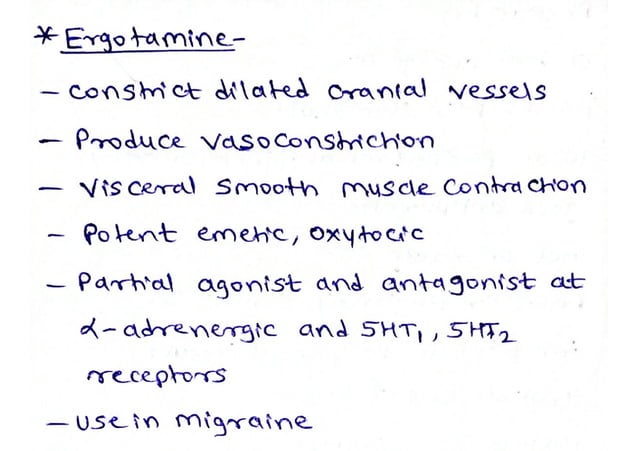 * Ergotamine-
- constrict dilated cranial vessels
- Produce vasoconstriction
- Visceral smooth muscle contraction
- Potent emetic, oxytocic
- Partial agonist and antagonist at
α-adrenergic and 5HT₁, 5HT₂
receptors
- use in migraine